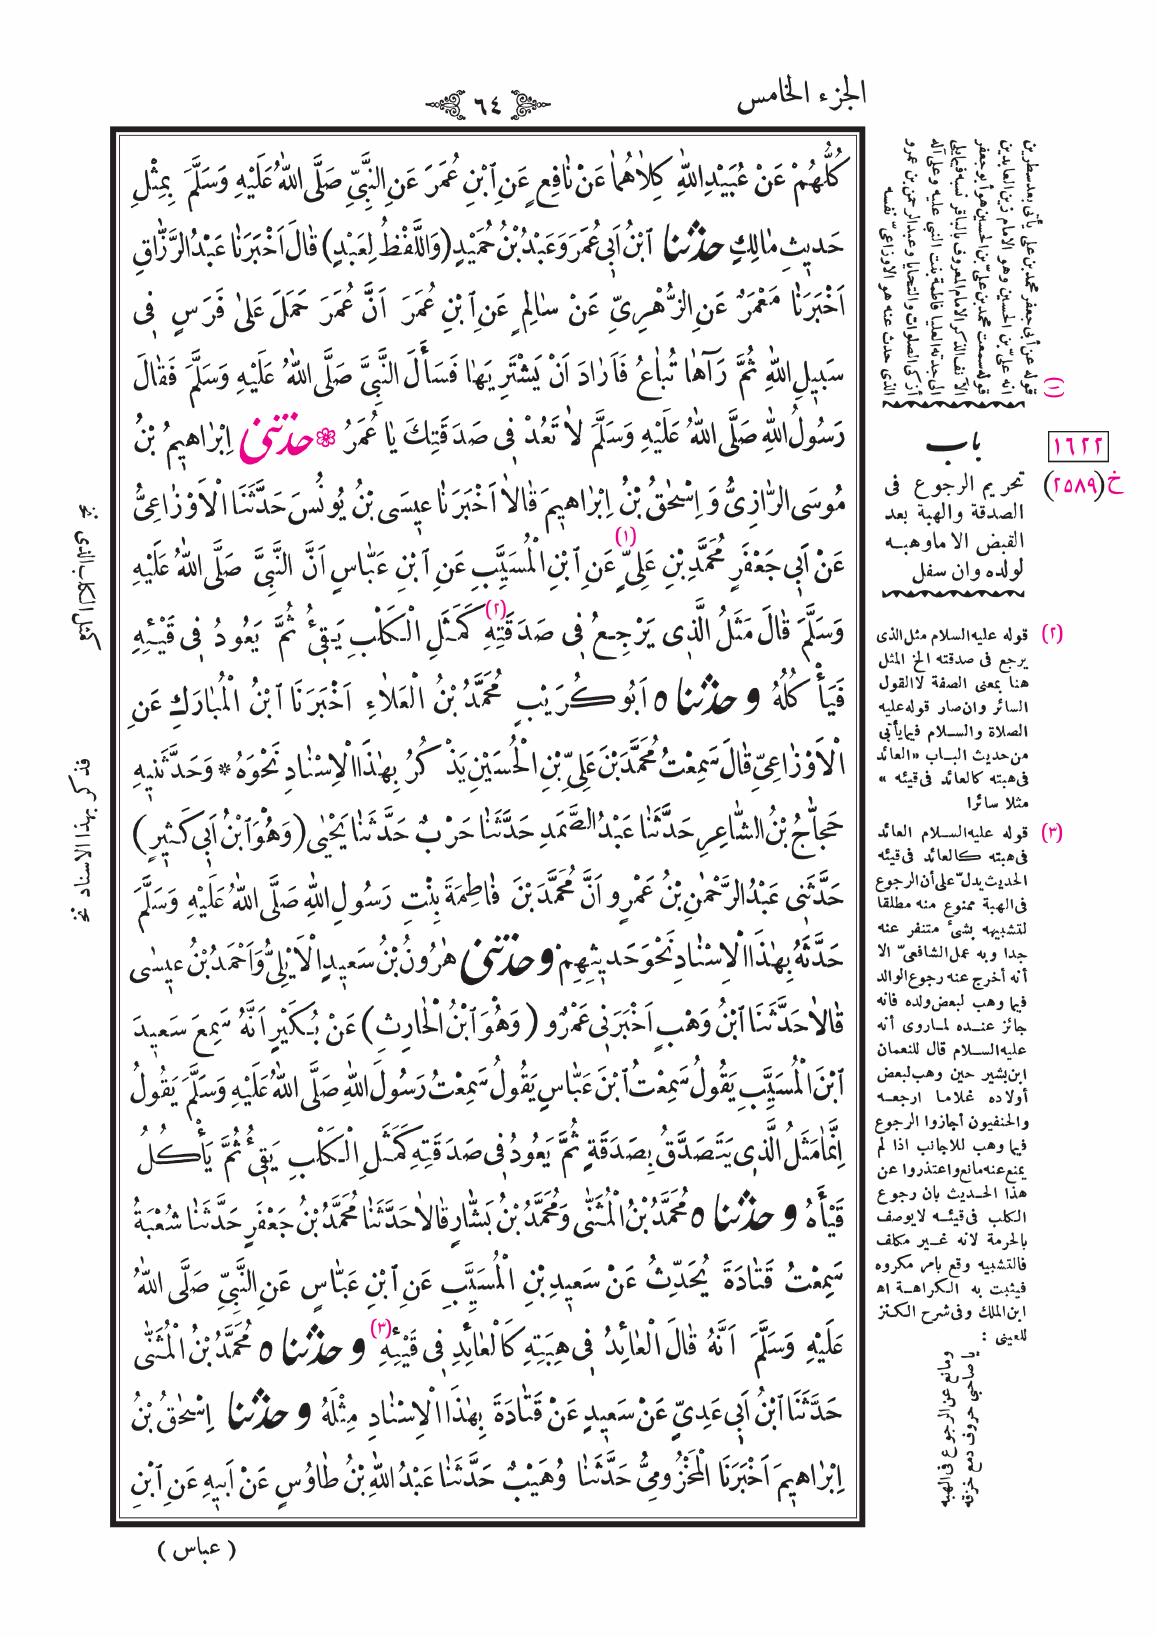 الجزء الخامس
٦٤
كُلُّهُمْ عَنْ عُبَيْدِ اللهِ كِلَاهُمَا عَنْ نَافِعٍ عَنِ ابْنِ عُمَرَ عَنِ النَّبِيِّ صَلَّى اللهُ عَلَيْهِ وَسَلَّمَ بِمِثْلِ
حَدِيثِ مَالِكٍ حدثنا ابْنُ أَبِي عُمَرَ وَعَبْدُ بْنُ حُمَيْدٍ (وَاللَّفْظُ لِعَبْدٍ) قَالَ أَخْبَرَنَا عَبْدُ الرَّزَّاقِ
أَخْبَرَنَا مَعْمَرٌ عَنِ الزُّهْرِيِّ عَنْ سَالِمٍ عَنِ ابْنِ عُمَرَ أَنَّ عُمَرَ حَمَلَ عَلَى فَرَسٍ فِي
سَبِيلِ اللهِ ثُمَّ رَآهَا تُبَاعُ فَأَرَادَ أَنْ يَشْتَرِيَهَا فَسَأَلَ النَّبِيَّ صَلَّى اللهُ عَلَيْهِ وَسَلَّمَ فَقَالَ
رَسُولُ اللهِ صَلَّى اللهُ عَلَيْهِ وَسَلَّمَ لَا تَعُدْ فِي صَدَقَتِكَ يَا عُمَرُ ❁ حدثني إِبْرَاهِيمُ بْنُ
مُوسَى الرَّازِيُّ وَإِسْحٰقُ بْنُ إِبْرَاهِيمَ قَالَا أَخْبَرَنَا عِيسَى بْنُ يُونُسَ حَدَّثَنَا الْأَوْزَاعِيُّ
عَنْ أَبِي جَعْفَرٍ مُحَمَّدِ بْنِ عَلِيٍّ (١) عَنِ ابْنِ الْمُسَيَّبِ عَنِ ابْنِ عَبَّاسٍ أَنَّ النَّبِيَّ صَلَّى اللهُ عَلَيْهِ
وَسَلَّمَ قَالَ مَثَلُ الَّذِي يَرْجِعُ فِي صَدَقَتِهِ (٢) كَمَثَلِ الْكَلْبِ يَقِيءُ ثُمَّ يَعُودُ فِي قَيْئِهِ
فَيَأْكُلُهُ و حدثناه أَبُو كُرَيْبٍ مُحَمَّدُ بْنُ الْعَلَاءِ أَخْبَرَنَا ابْنُ الْمُبَارَكِ عَنِ
الْأَوْزَاعِيِّ قَالَ سَمِعْتُ مُحَمَّدَ بْنَ عَلِيِّ بْنِ الْحُسَيْنِ يَذْكُرُ بِهٰذَا الْإِسْنَادِ نَحْوَهُ * وَحَدَّثَنِيهِ
حَجَّاجُ بْنُ الشَّاعِرِ حَدَّثَنَا عَبْدُ الصَّمَدِ حَدَّثَنَا حَرْبٌ حَدَّثَنَا يَحْيٰى (وَهُوَ ابْنُ أَبِي كَثِيرٍ)
حَدَّثَنِي عَبْدُ الرَّحْمٰنِ بْنُ عَمْرٍو أَنَّ مُحَمَّدَ بْنَ فَاطِمَةَ بِنْتِ رَسُولِ اللهِ صَلَّى اللهُ عَلَيْهِ وَسَلَّمَ
حَدَّثَهُ بِهٰذَا الْإِسْنَادِ نَحْوَ حَدِيثِهِمْ و حدثني هٰرُونُ بْنُ سَعِيدٍ الْأَيْلِيُّ وَأَحْمَدُ بْنُ عِيسَى
قَالَا حَدَّثَنَا ابْنُ وَهْبٍ أَخْبَرَنِي عَمْرٌو (وَهُوَ ابْنُ الْحَارِثِ) عَنْ بُكَيْرٍ أَنَّهُ سَمِعَ سَعِيدَ
ابْنَ الْمُسَيَّبِ يَقُولُ سَمِعْتُ ابْنَ عَبَّاسٍ يَقُولُ سَمِعْتُ رَسُولَ اللهِ صَلَّى اللهُ عَلَيْهِ وَسَلَّمَ يَقُولُ
إِنَّمَا مَثَلُ الَّذِي يَتَصَدَّقُ بِصَدَقَةٍ ثُمَّ يَعُودُ فِي صَدَقَتِهِ كَمَثَلِ الْكَلْبِ يَقِيءُ ثُمَّ يَأْكُلُ
قَيْأَهُ و حدثناه مُحَمَّدُ بْنُ الْمُثَنَّى وَمُحَمَّدُ بْنُ بَشَّارٍ قَالَا حَدَّثَنَا مُحَمَّدُ بْنُ جَعْفَرٍ حَدَّثَنَا شُعْبَةُ
سَمِعْتُ قَتَادَةَ يُحَدِّثُ عَنْ سَعِيدِ بْنِ الْمُسَيَّبِ عَنِ ابْنِ عَبَّاسٍ عَنِ النَّبِيِّ صَلَّى اللهُ
عَلَيْهِ وَسَلَّمَ أَنَّهُ قَالَ الْعَائِدُ فِي هِبَتِهِ كَالْعَائِدِ فِي قَيْئِهِ (٣) و حدثناه مُحَمَّدُ بْنُ الْمُثَنَّى
حَدَّثَنَا ابْنُ أَبِي عَدِيٍّ عَنْ سَعِيدٍ عَنْ قَتَادَةَ بِهٰذَا الْإِسْنَادِ مِثْلَهُ و حدثنا إِسْحٰقُ بْنُ
إِبْرَاهِيمَ أَخْبَرَنَا الْمَخْزُومِيُّ حَدَّثَنَا وُهَيْبٌ حَدَّثَنَا عَبْدُ اللهِ بْنُ طَاوُسٍ عَنْ أَبِيهِ عَنِ ابْنِ
(عباس)
(١) قوله عن أبي جعفر محمد بن علي يأتي بعد سطرين
انه علي بن الحسين وهو الامام زين العابدين
قوله سمعت محمد بن علي بن الحسين هو أبو جعفر
الآنف الذكر الامام المعروف بالباقر نسبه فيما يلي
الى جدته العليا فاطمة بنت النبي عليه وعلى آله
أزكى الصلوات والتحايا وعبد الرحمن بن عمرو
الذي حدث عنه هو الاوزاعيّ نفسه
١٦٢٢
خ (٢٥٨٩)
باب
تحريم الرجوع فى
الصدقة والهبة بعد
القبض الا ماوهبه
لولده وان سفل
(٢) قوله عليه السلام مثل الذى
يرجع فى صدقته الخ المثل
هنا بمعنى الصفة لا القول
السائر وان صار قوله عليه
الصلاة والسلام فيما يأتى
من حديث الباب «العائد
فى هبته كالعائد فى قيئه»
مثلا سائرا
(٣) قوله عليه السلام العائد
فى هبته كالعائد فى قيئه
الحديث يدلّ على أن الرجوع
فى الهبة ممنوع منه مطلقا
لتشبيهه بشئ متنفر عنه
جدا وبه عمل الشافعىّ الا
أنه أخرج عنه رجوع الوالد
فيما وهب لبعض ولده فانه
جائز عنده لما روى أنه
عليه السلام قال للنعمان
ابن بشير حين وهب لبعض
أولاده غلاما ارجعه
والحنفيون أجازوا الرجوع
فيما وهب للاجانب اذا لم
يمنع عنه مانع واعتذروا عن
هذا الحديث بان رجوع
الكلب فى قيئه لا يوصف
بالحرمة لانه غير مكلف
فالتشبيه وقع بامر مكروه
فيثبت به الكراهة اه
ابن الملك وفى شرح الكنز
للعينى :
ومانع عن الرجوع فى الهبه
يا صاحبى حروف دمع خزقه
كمثل الكلب الذى نخ
فذكر بهذا الاسناد نخ